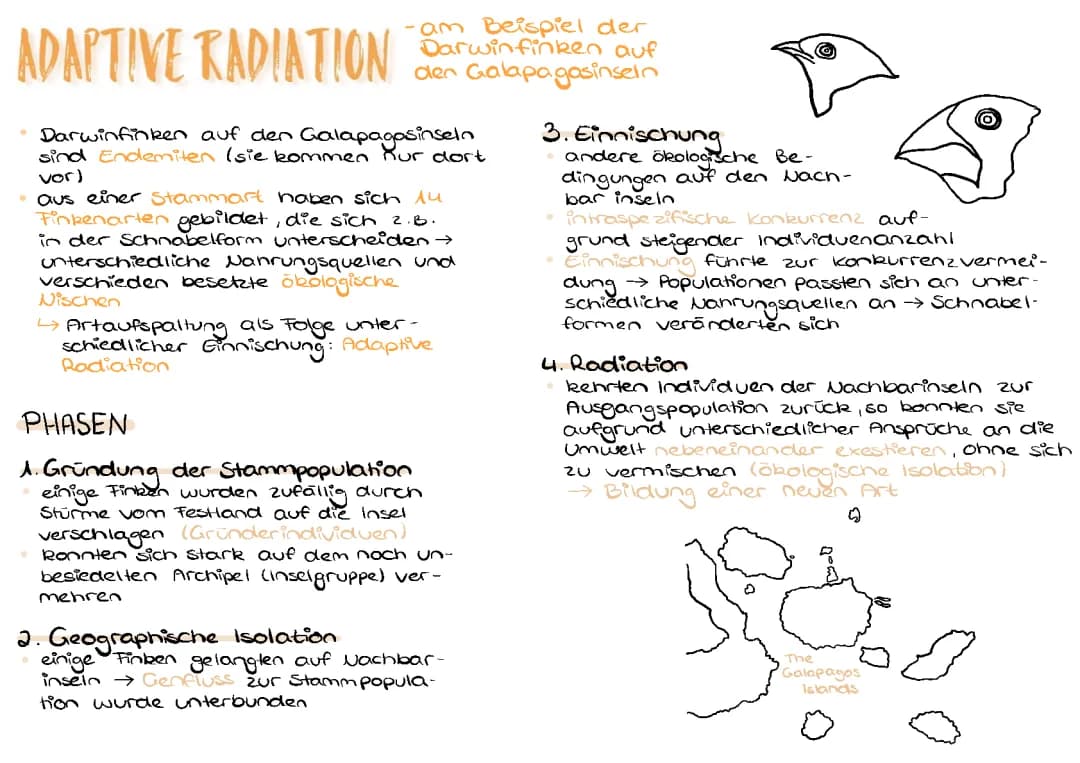 ADAPTIVE RADIATION
- am Beispiel der
Darwinfinken auf
den Galapagosinseln
• Darwinfinken auf den Galapagosinseln
sind Endemiten (sie kommen nur dort
vor)
• aus einer Stammart haben sich 14
Finkenarten gebildet, die sich z.B.
in der Schnabelform unterscheiden →
unterschiedliche Nahrungsquellen und
verschieden besetzte ökologische
Nischen
↳ Artaufspaltung als Folge unter-
schiedlicher Einnischung: Adaptive
Radiation
PHASEN
1. Gründung der Stammpopulation
• einige Finken wurden zufällig durch
Stürme vom Festland auf die Insel
verschlagen (Gründerindividuen)
• konnten sich stark auf dem noch un-
besiedelten Archipel (Inselgruppe) ver-
mehren
2. Geographische Isolation
• einige Finken gelangten auf Nachbar-
inseln → Genfluss zur Stammpopula-
tion wurde unterbunden
3. Einnischung
• andere ökologische Be-
dingungen auf den Nach-
bar inseln
• intraspezifische Konkurrenz auf-
grund steigender Individuenanzahl
• Einnischung führte zur Konkurrenzvermei-
dung → Populationen passten sich an unter-
schiedliche Nahrungsquellen an → Schnabel-
formen veränderten sich
4. Radiation
• kehrten Individuen der Nachbarinseln zur
Ausgangspopulation zurück, so konnten sie
aufgrund unterschiedlicher Ansprüche an die
Umwelt nebeneinander exestieren, ohne sich
zu vermischen (ökologische Isolation)
→ Bildung einer neuen Art
The
Galapagos
Islands